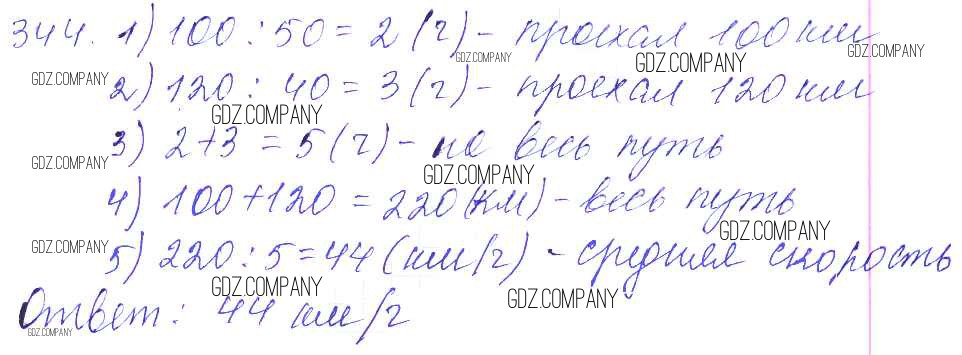 344. 1) 100 : 50 = 2 (г) - проехал 100 км
GDZ.COMPANY GDZ.COMPANY GDZ.COMPANY GDZ.COMPANY
2) 120 : 40 = 3 (г) - проехал 120 км
GDZ.COMPANY
3) 2+3 = 5 (г) - на весь путь
GDZ.COMPANY GDZ.COMPANY
4) 100+120 = 220 (км) - весь путь
GDZ.COMPANY GDZ.COMPANY
5) 220 : 5 = 44 (км/г) - средняя скорость
GDZ.COMPANY GDZ.COMPANY
Ответ: 44 км/г
GDZ.COMPANY